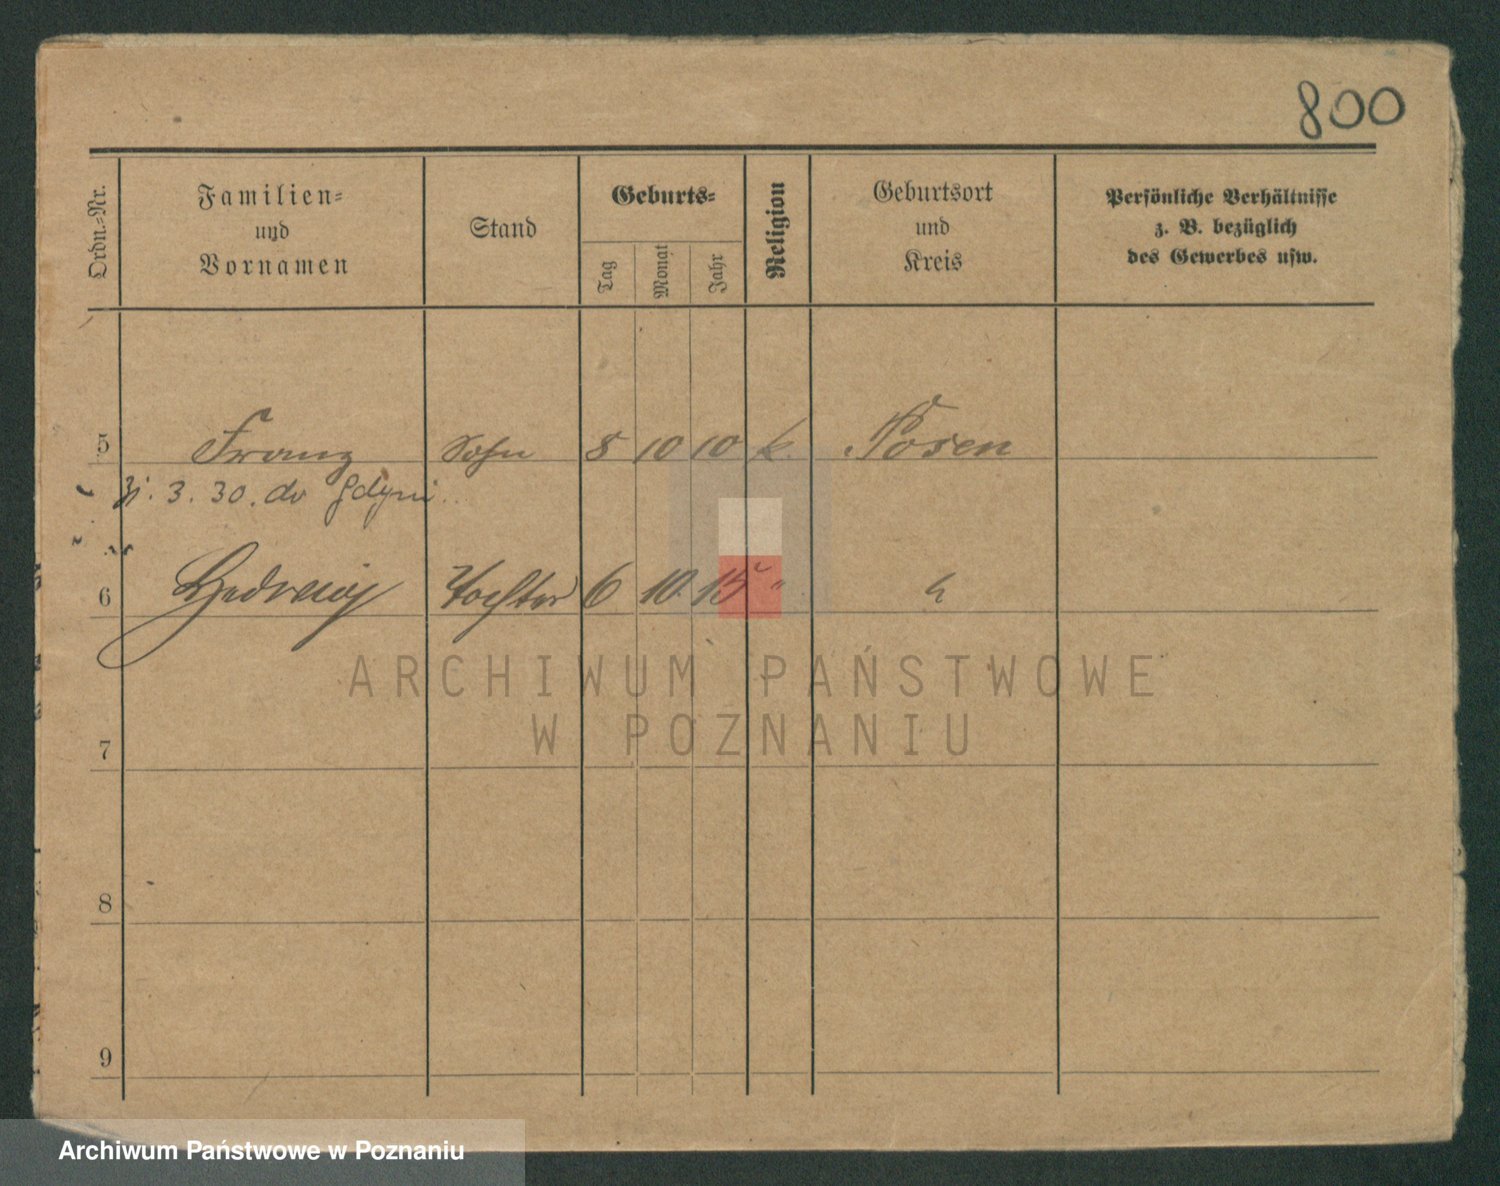 800
Ordn.-Nr. Familien- und Vornamen Stand Geburts- Tag Monat Jahr Religion Geburtsort und Kreis Persönliche Verhältnisse z. B. bezüglich des Gewerbes usw.
5 Franz Sohn 8 10 10 k. Posen
3. 30. do Gdyni
6 Hedwig Tochter 6 10. 15 "
ARCHIWUM PAŃSTWOWE
W POZNANIU
7
8
9
Archiwum Państwowe w Poznaniu